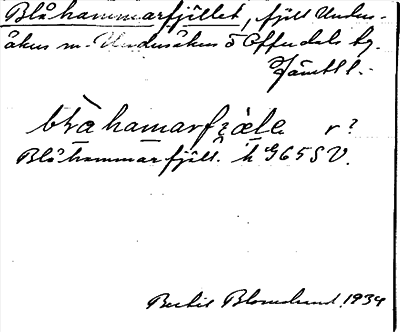 Blåhammarfjället, fjäll Unders-
åkers sn. Undersåkers o Offerdals tg.
Jämtl l.
blåhamarfjæle r?
Blåhammarfjäll. h G65SV.
Bertil Blomstrand. 1934